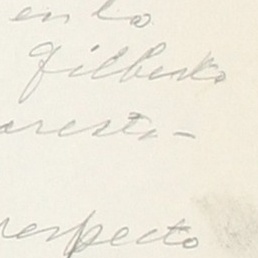 en lo
Gilberto
aresta-
respecto